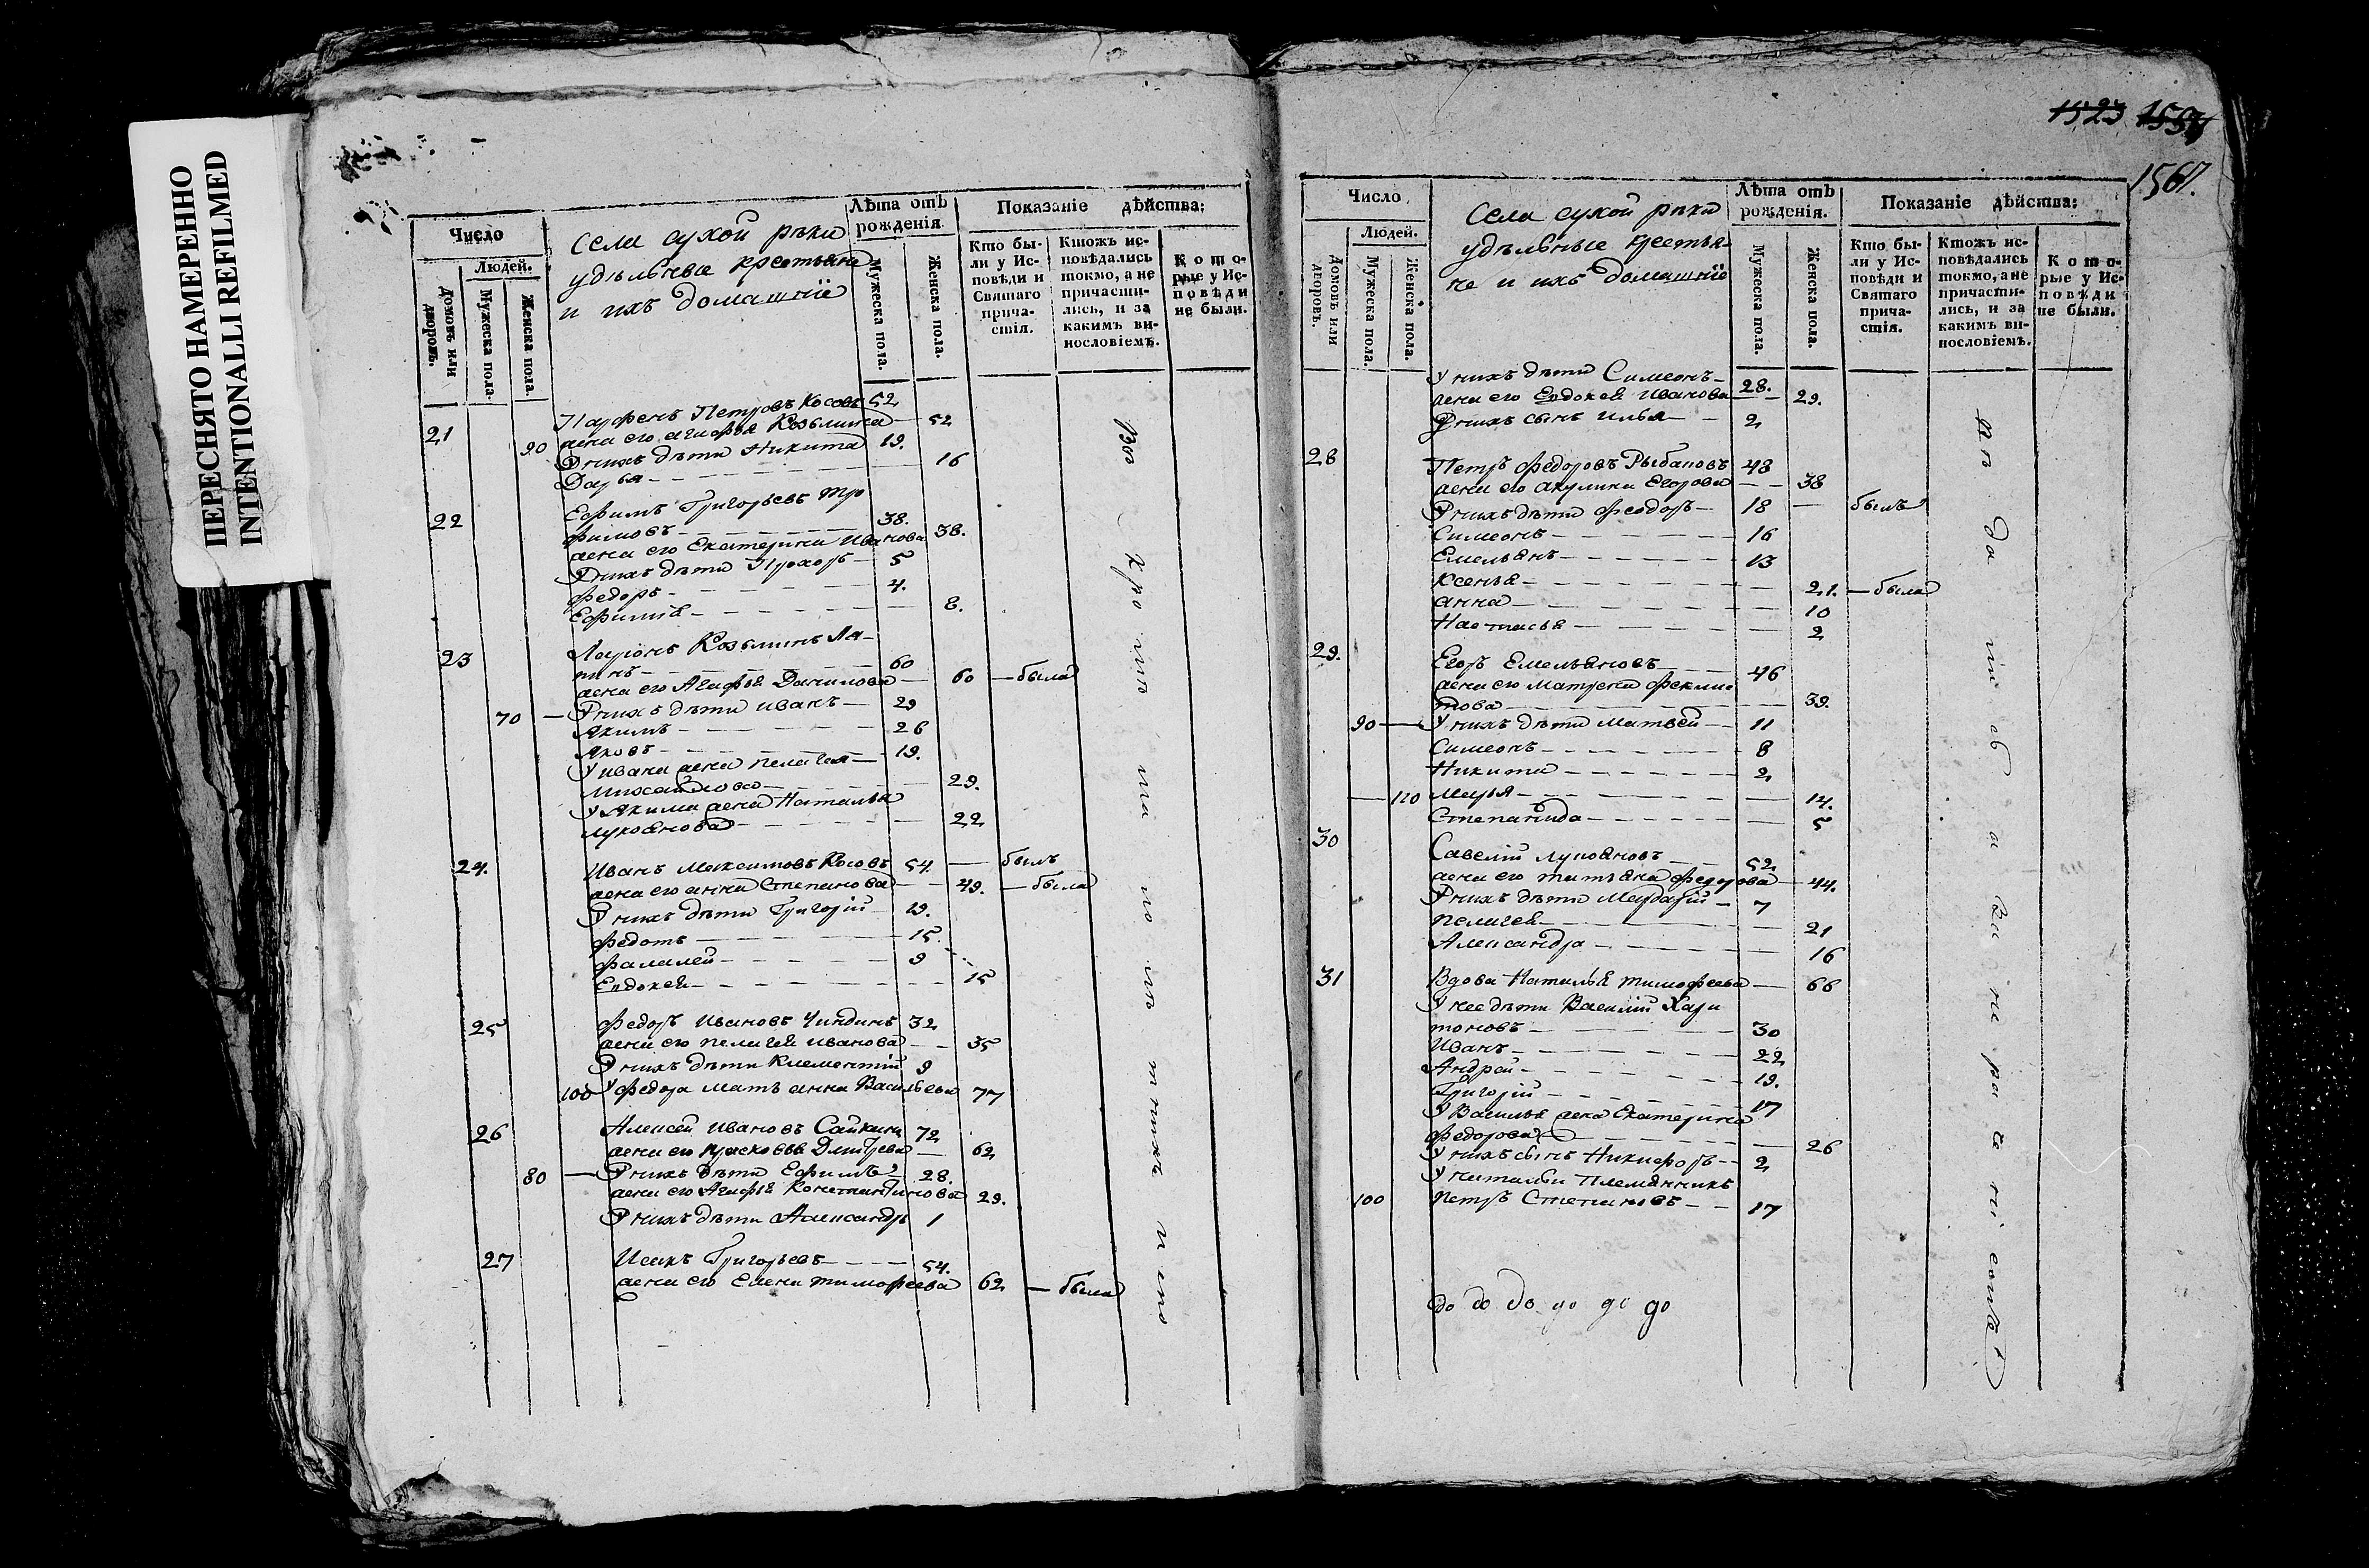 ПЕРЕСНЯТО НАМЕРЕННО
INTENTIONALLI REFILMED
Число
Людей.
Домовъ или дворовъ.
Мужеска пола.
Женска пола.
Села сухой рѣки
удѣльные крестьяне
и ихъ домашнїе
Лѣта отъ рожденія.
Мужеска пола.
Женска пола.
Показаніе дѣйства:
Кто бы-
ли у Ис-
повѣди и
Святаго
прича-
стія.
Ктожъ ис-
повѣдались
токмо, а не
причасти-
лись, и за
какимъ ви-
нословіемъ.
Кото-
рые у Ис-
повѣди
не были.
21 Парфенъ Петровъ Косовъ 52
90 жена его агафья Козьмина 52
У нихъ дѣти Никита 19.
Дарья 16
22 Ефимъ Григорьевъ Тро
фимовъ 38.
жена его Екатерина Иванова 38.
У нихъ дѣти Прохоръ 5
Федоръ 4.
Ефимія 8.
23 Ларіонъ Козьминъ Ла-
пинъ 60
жена его Агафья Данилова 60 — была
70 — У нихъ дѣти иванъ 29
Якимъ 26
Яковъ 19.
У ивана жена пелагея
михайлова 29.
У Якима жена Наталья
лукоянова 22
24. Иванъ Максимовъ Косовъ 54. — былъ
жена его анна Степанова 49. — была
У нихъ дѣти Григорій 19.
федотъ 15
фалалей 9
Евдокея 15
25 федоръ Ивановъ Чиндинъ 32
жена его пелагея иванова 35
У нихъ дѣти Клементій 9
100 У федора мать анна Васильева 77
26 Алексей Ивановъ Сайкинъ 72
жена его прасковья Дмитрева 62
80 — У нихъ дѣти Ефимъ 28.
жена его Агафья Константинова 29.
У нихъ дѣти Александръ 1
27 Исакъ Григорьевъ 54.
жена его Елена тимофеева 62 — была
1523
1567.
Число
Людей.
Домовъ или дворовъ.
Мужеска пола.
Женска пола.
Села сухой рѣки
удѣльные крестья-
не и ихъ домашнїе
Лѣта отъ рожденія.
Мужеска пола.
Женска пола.
Показаніе дѣйства:
Кто бы-
ли у Ис-
повѣди и
Святаго
прича-
стія.
Ктожъ ис-
повѣдались
токмо, а не
причасти-
лись, и за
какимъ ви-
нословіемъ.
Кото-
рые у Ис-
повѣди
не были.
У нихъ дѣти Симеонъ 28.
жена его Евдокея Иванова 29.
У нихъ сынъ илья 2
28 Петръ федоровъ Рыбаковъ 48
жена его акулина Егорова 38
У нихъ дѣти феодоръ 18 — былъ
Симеонъ 16
Емельянъ 13
Ксенья 21. — была
анна 10
Настасья 2
29. Егоръ Емельяновъ 46
жена его матрена
39.
90 — У нихъ дѣти матвей 11
Симеонъ 8
Никита 2
110 марья 14.
Степанида 5
30 Савелій лукояновъ 52
жена его татьяна федорова 44.
У нихъ дѣти Мардарій 7
пелагея 21
Александра 16
31 Вдова Наталья тимофеева 66
У нее дѣти Василій Хари
тоновъ 30
Иванъ 22
Андрей 19.
Григорій 17
У Василья жена Екатерина
федорова 26
У нихъ сынъ Никифоръ 2
У натальи племянникъ
100 петръ Степановъ 17
до до до до до до